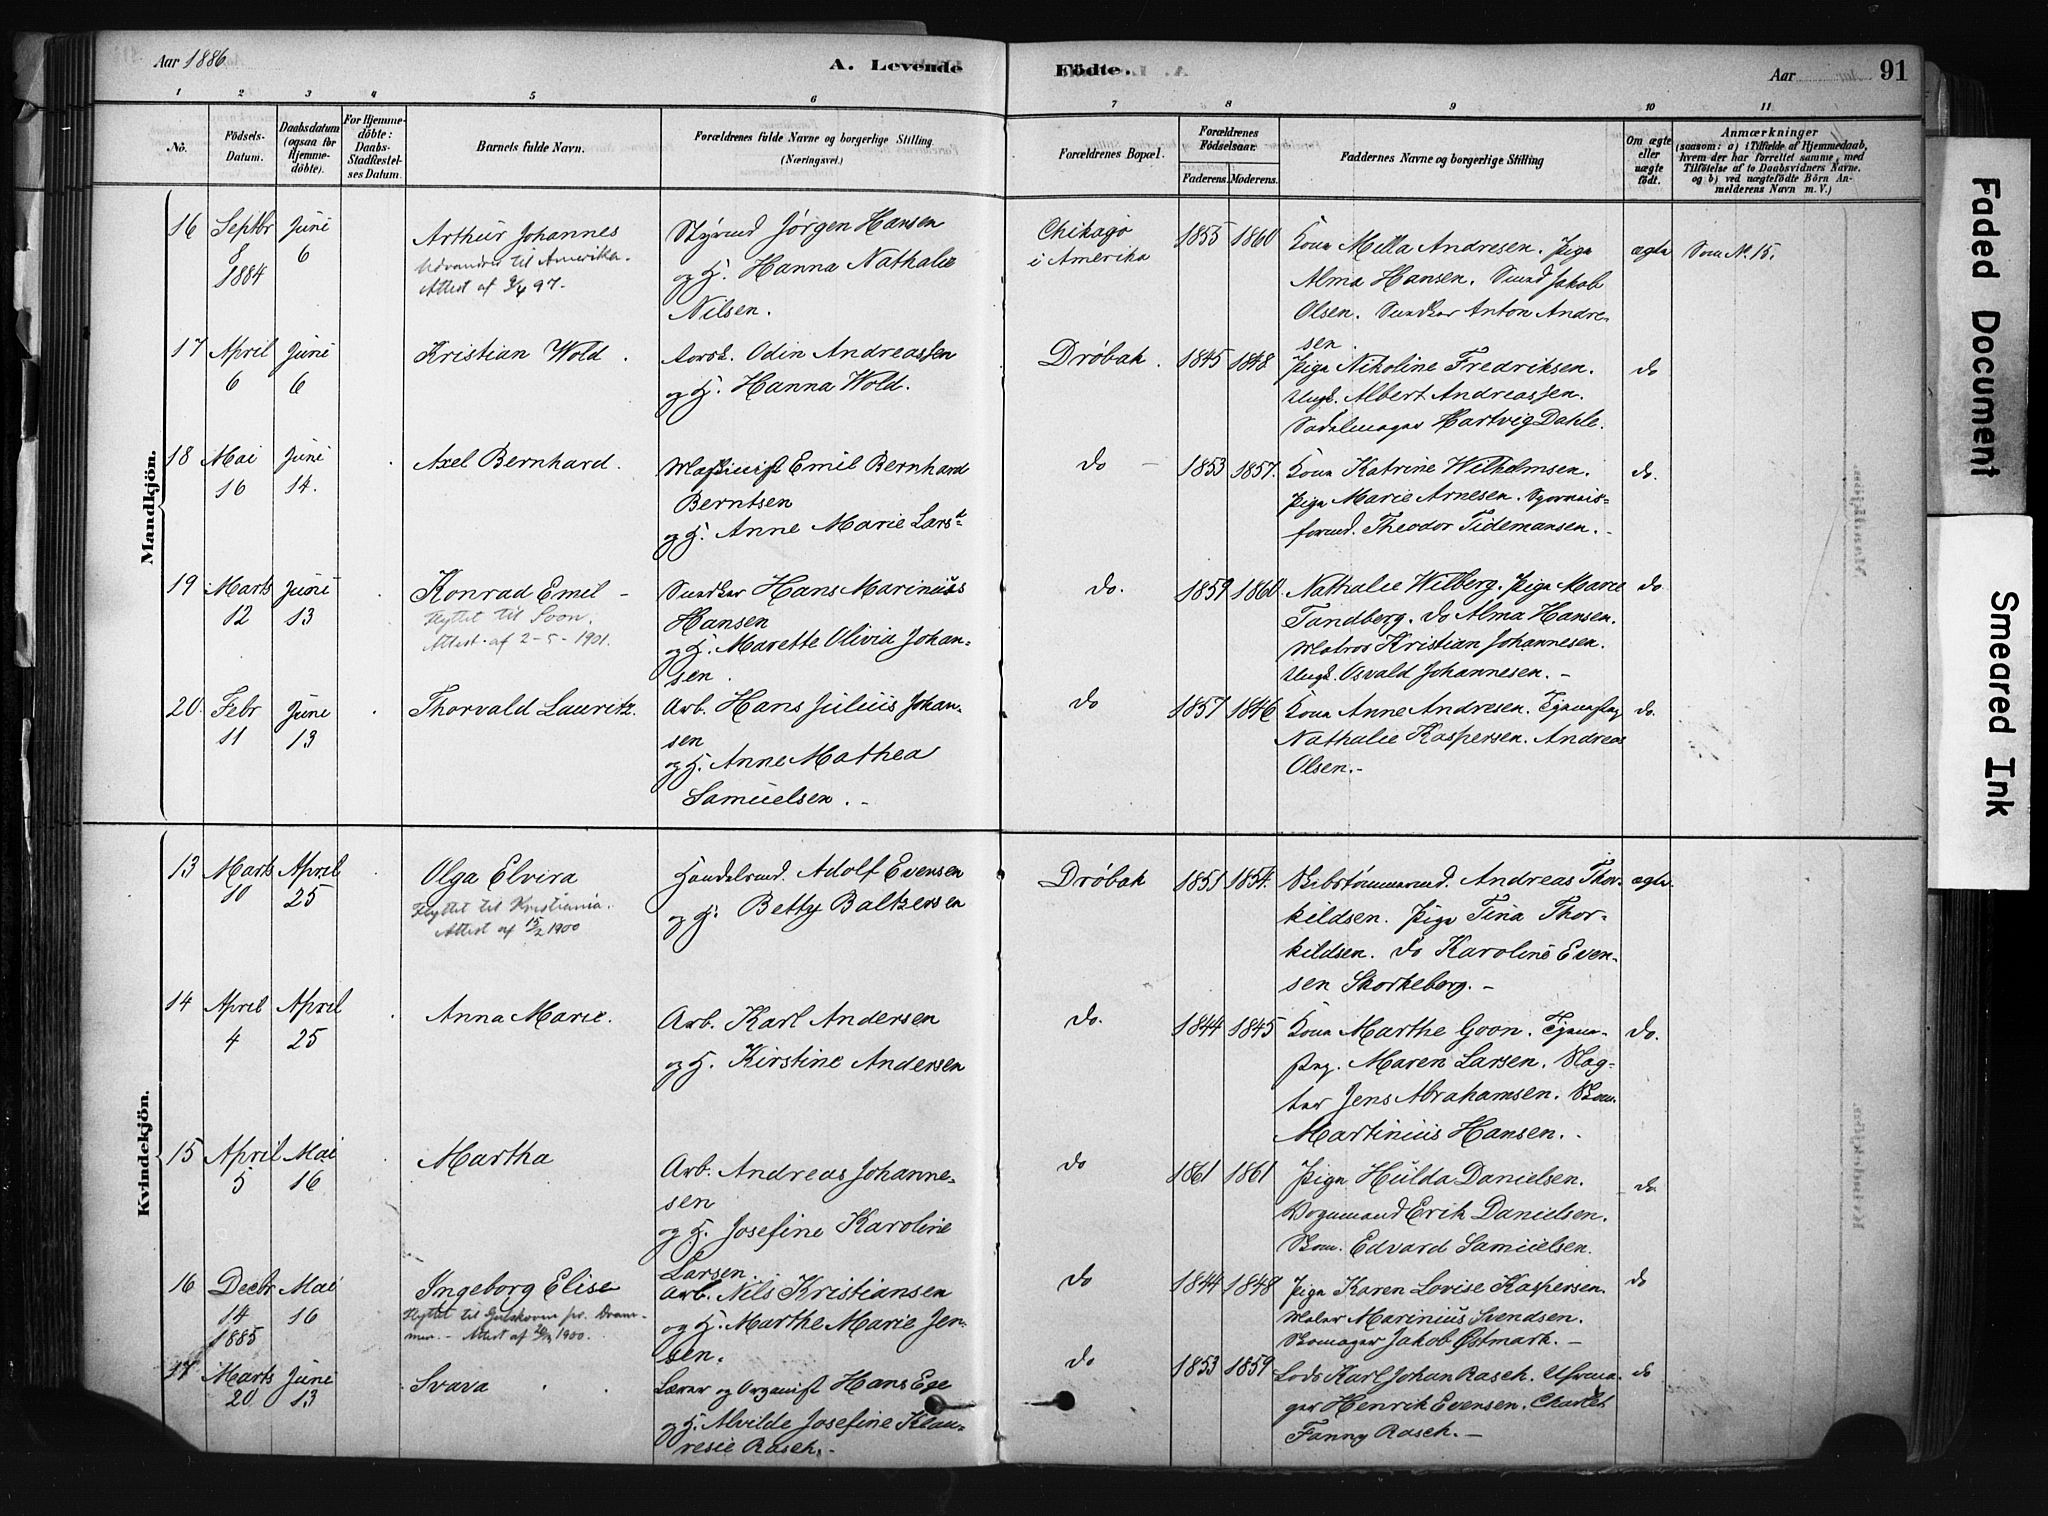 Aar 1886
A. Levende
Födte.
Aar
91
1 2 3 4 5 6 7 8 9 10 11
No.
Födsels-
Datum.
Daabsdatum
(ogsaa for
Hjemme-
döbte).
For Hjemme-
döbte:
Daabs-
Stadfæstel-
ses Datum.
Barnets fulde Navn.
Forældrenes fulde Navne og borgerlige Stilling
(Næringsvei.)
Forældrenes Bopæl.
Forældrenes
Födselsaar.
Faderens. Moderens.
Faddernes Navne og borgerlige Stilling
Om ægte
eller
uægte
födt.
Anmærkninger
(saasom: a) i Tilfælde af Hjemmedaab,
hvem der har forrettet samme, med
Tilföielse af to Daabsvidners Navne.
og b) ved uægtefödte Börn An-
melderens Navn m. V.)
Mandkjön.
16
Septbr
8
1884
Juni
6
Arthur Johannes
Udvandret til Amerika.
Attest af 97.
Styrmd Jørgen Hansen
og H. Hanna Nathalie
Nilsen.
Chikago
i Amerika
1855
1860
Kona Milla Andresen. Pige
Alma Hansen. Jakob
Olsen. Anton Andre-
sen.
ægte
Som No. 15.
17
April
6
Juni
6
Kristian Wold.
Odin Andreassen
og H. Hanna Wold.
Drøbak.
1845
1848
Pige Nikoline Fredriksen.
Ungk. Albert Andreassen.
Sadelmager Hartvig Dahle.
do
18
Mai
16
Juni
14.
Axel Bernhard.
Maskinist Emil Bernhard
Berntsen
og H. Anne Marie Larsd
do
1853
1857.
Kona Katrine Wilhelmsen.
Pige Marie Arnesen.
Theodor Tidemansen. -
do.
19
Marts
12
Juni
13
Konrad Emil -
Flyttet til Soon.
Attest af 2-5-1901.
Hans Marinius
Hansen
og H. Marette Olivia Johan-
sen.
do.
1859
1860
Nathalie Wilberg. Pige Marie
Tandberg. do Alma Hansen.
Matros Kristian Johannesen.
Ungk. Osvald Johannesen. -
do
20.
Febr
11
Juni
13
Thorvald Lauritz.
Arb. Hans Julius Johan-
sen
og H. Anne Mathea
Samuelsen. -
do
1857
1846
Kona Anne Andresen.
Nathalie Kaspersen. Andreas
Olsen. -
do.
Kvindekjön.
13
Marts
10
April
25
Olga Elvira
Flyttet til Kristiania.
Attest af 15/2 1900
Handelsmd. Adolf Evensen
og H. Betty Baltzersen
Drøbak
1851
1854.
Skibstømmermd. Andreas Thor-
kildsen. Pige Tina Thor-
kildsen. do Karoline Even-
sen Skorkeberg. -
ægte.
14
April
4
April
25
Anna Marie.
Arb. Karl Andersen
og H. Kirstine Andersen
do.
1844
1845
Kona Marthe Goon. Tjeneste-
Maren Larsen. Slag-
ter Jens Abrahamsen. Skom.
Martinius Hansen. -
do.
15
April
5
Mai
16
Martha
Arb. Andreas Johanne-
sen
og H. Josefine Karoline
Larsen.
do
1861
1861
Pige Hulda Danielsen.
Erik Danielsen.
Skom. Edvard Samuelsen.
do
16
Decbr
14
1885
Mai
16
Ingeborg Elise
Flyttet til Gulskoven pr. Dram-
men. - Attest af 1900.
Arb. Nils Kristiansen
og H. Marthe Marie Jen-
sen.
do
1844
1848
Pige Karen Lovise Kaspersen.
Maler Marinius Svendsen.
Skomager Jakob Østmark. -
do
17
Marts
20
Juni
13
Svava
Lærer og Organist Hans Ege
og H. Alvilde Josefine Klau-
resie Rasch. -
do
1853
1859
Lods Karl Johan Rasch.
Henrik Evensen.
Fanny Rasch. -
do
Faded Document
Smeared Ink